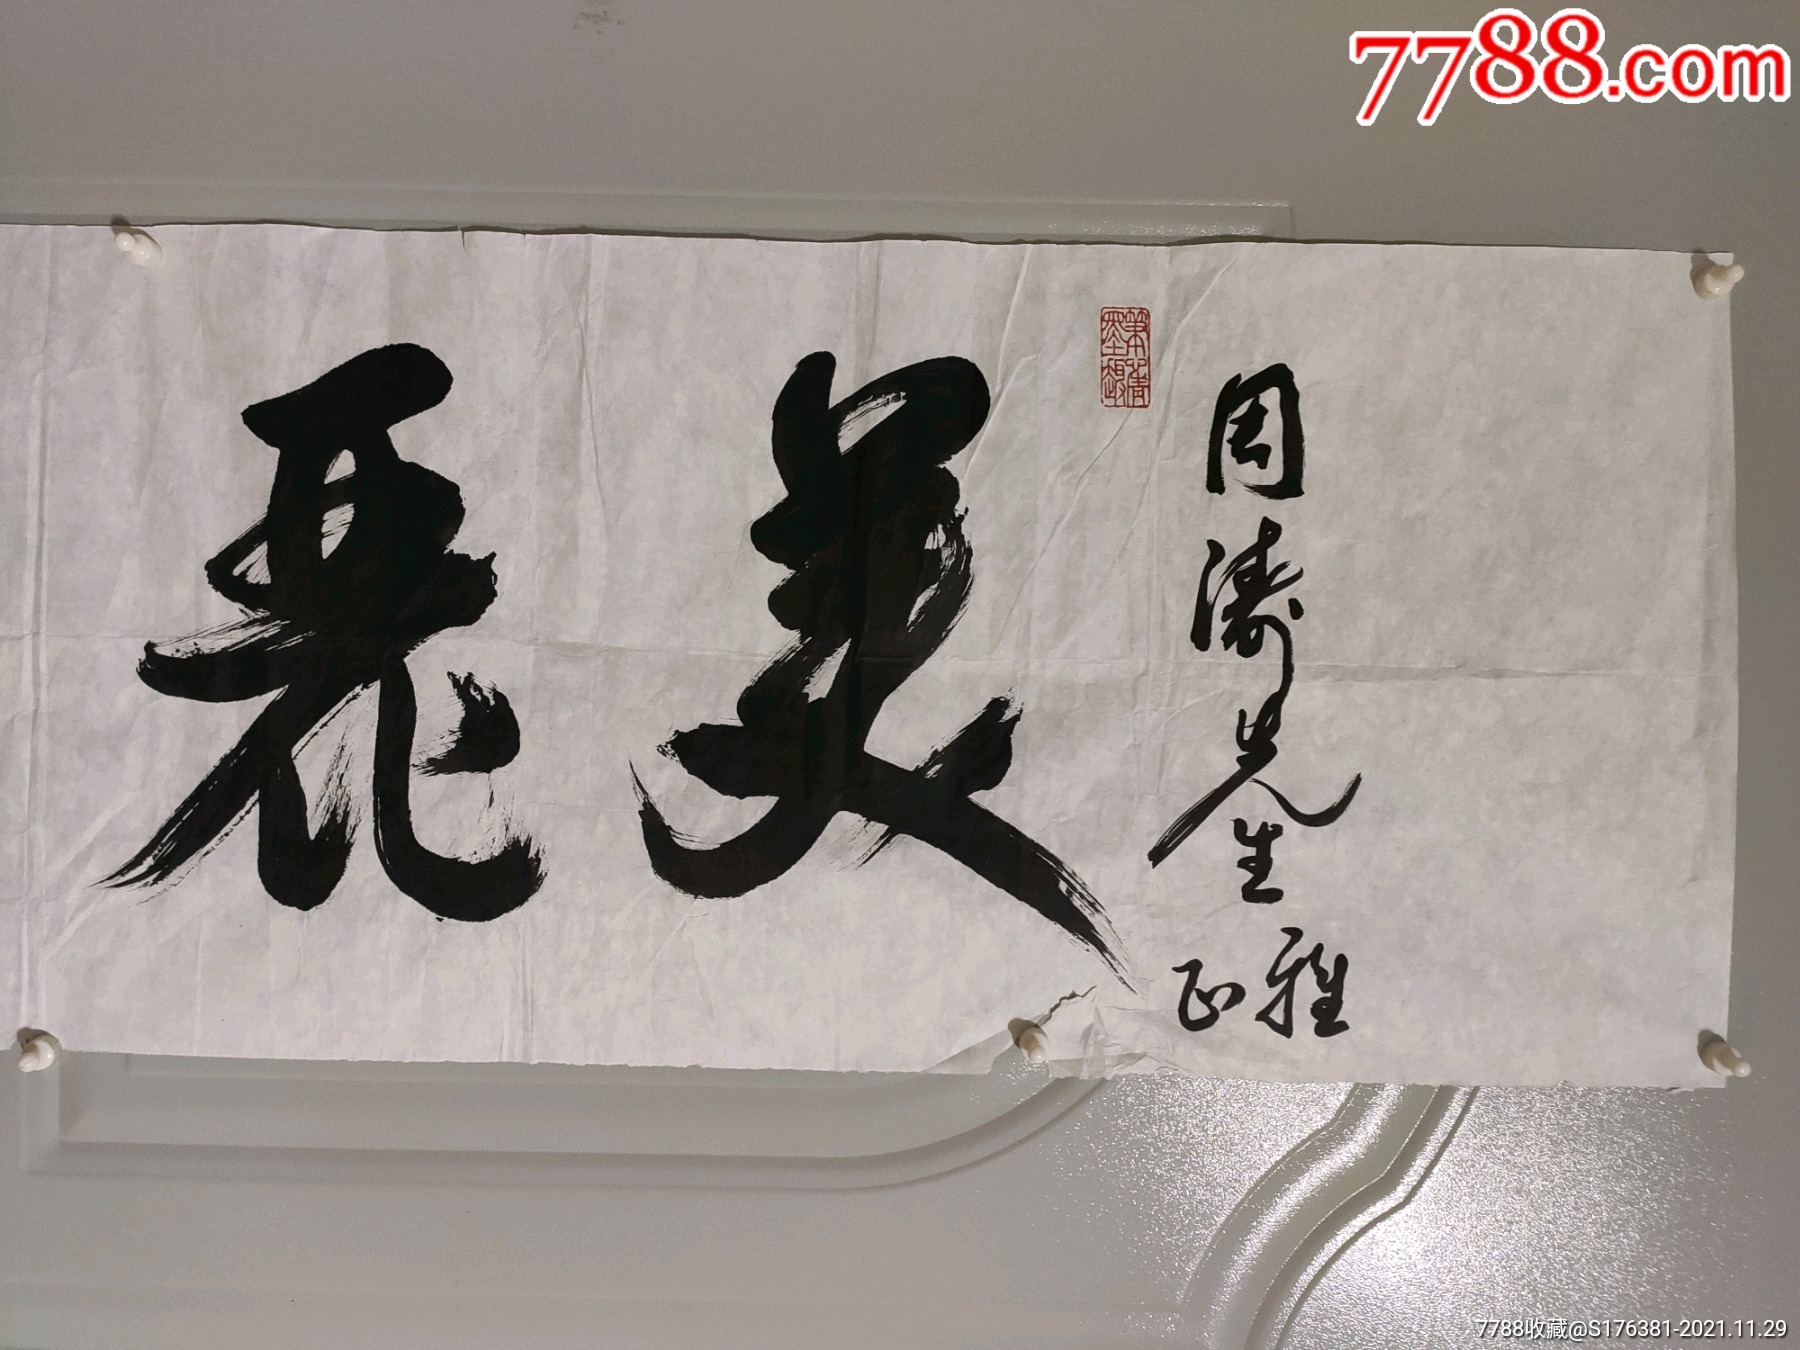 7788.com
周濤先生
雅正
美麗
7788收藏@S176381-2021.11.29